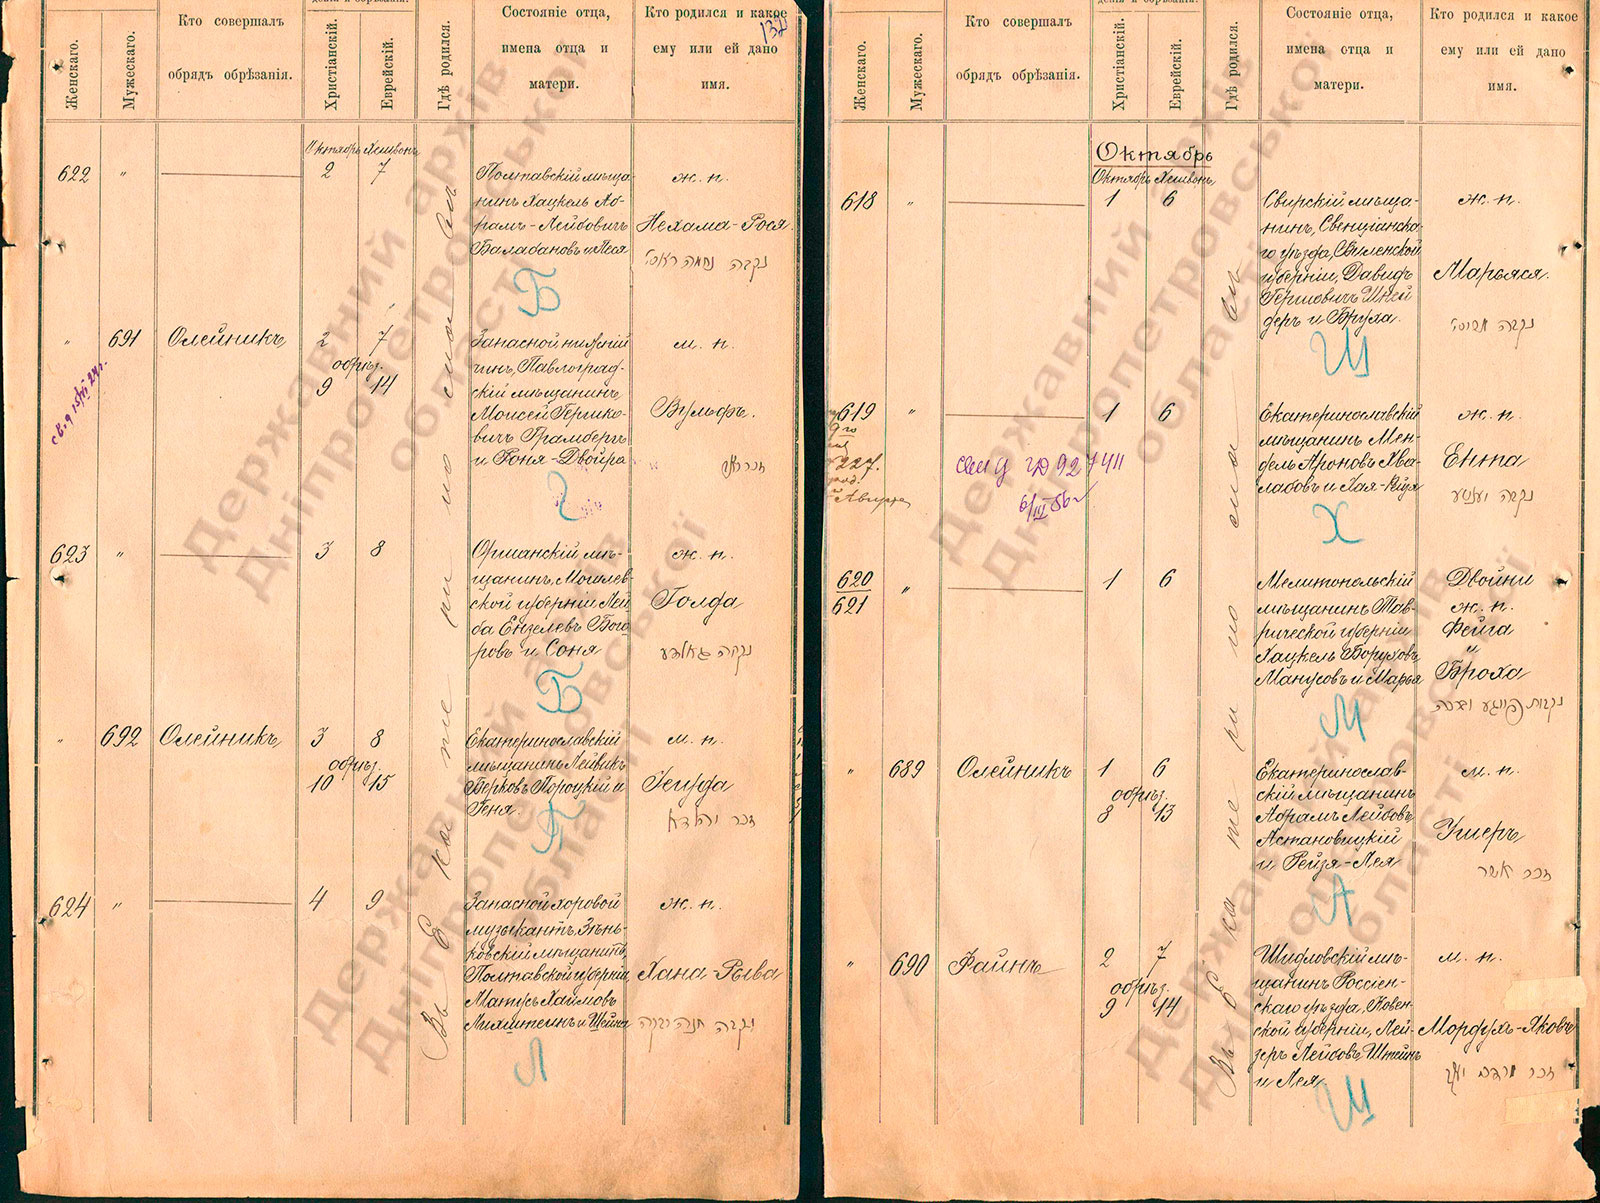 132
Женскаго.
Мужескаго.
Кто совершалъ
обрядъ обрѣзанія.
Христіанскій.
Еврейскій.
Гдѣ родился.
Состояніе отца,
имена отца и
матери.
Кто родился и какое
ему или ей дано
имя.
Октябрь Хешвонъ
622
"
2
7
Полтавскій мѣща-
нинъ Хацкель Аб-
рамъ-Лейбовичъ
Балабановъ и Песя
ж. п.
Нехама-Рося
נקבה נחמה ראסי
Б
"
691
Олейникъ
2
7
обрѣз.
9
14
Запасной нижній
чинъ, Павлоград-
скій мѣщанинъ
Моисей Гершко-
вичъ Грамбергъ
и Роня-Двойра
м. п.
Вульфъ.
Г
623
"
3
8
Оршанскій мѣ-
щанинъ, Могилев-
ской губерніи Лей-
ба Ензелевъ Бого-
ровъ и Соня
ж. п.
Голда
נקבה גאלדע
Б
"
692
Олейникъ
3
8
обрѣз.
10
15
Екатеринославскій
мѣщанинъ Лейвикъ
Берковъ Пороцкій и
Геня.
м. п.
Іегуда
זכר יהודא
П
624
"
4
9
Запасной хоровой
музыкантъ, Зѣнь-
ковскій мѣщанинъ,
Полтавской губерніи,
Матусъ Хаимовъ
Лихштеинъ и Шейна
ж. п.
Хана-Рыва
נקבה חנה רבקה
Л
Въ г. Екатеринославѣ
Женскаго.
Мужескаго.
Кто совершалъ
обрядъ обрѣзанія.
Христіанскій.
Еврейскій.
Гдѣ родился.
Состояніе отца,
имена отца и
матери.
Кто родился и какое
ему или ей дано
имя.
Октябрь
Октябрь Хешвонъ
618
"
1
6
Свирскій мѣща-
нинъ, Свенціанска-
го уѣзда, Виленской
губерніи, Давидъ
Гершовичъ Шней
деръ и Бруха.
ж. п.
Марьяся.
Ш
619
"
1
6
Екатеринославскій
мѣщанинъ Мен-
дель Ароновъ Хва-
лабовъ и Хая-Цейря
ж. п.
Ента
נקבה יענטע
Х
620
621
"
1
6
Мелитопольскій
мѣщанинъ Тав-
рической губерніи
Хацкель Боруховъ
Манусовъ и Марья
Двойни
ж. п.
Фейга
"
Броха
М
"
689
Олейникъ
1
6
обрѣз.
8
13
Екатеринослав-
скій мѣщанинъ
Абрамъ Лейбовъ
Астановицкій
и Рейзя-Лея
м. п.
Ушеръ
זכר אשר
А
"
690
Файнъ
2
7
обрѣз.
9
14
Шидловскій мѣ-
щанинъ Россіен-
скаго уѣзда, Ковен-
ской губерніи, Лей-
зеръ Лейбовъ Штейнъ
и Лея
м. п.
Мордухъ-Яковъ
זכר מרדכי יעקב
Ш
Въ г. Екатеринославѣ
Державний архів
Дніпропетровської
області